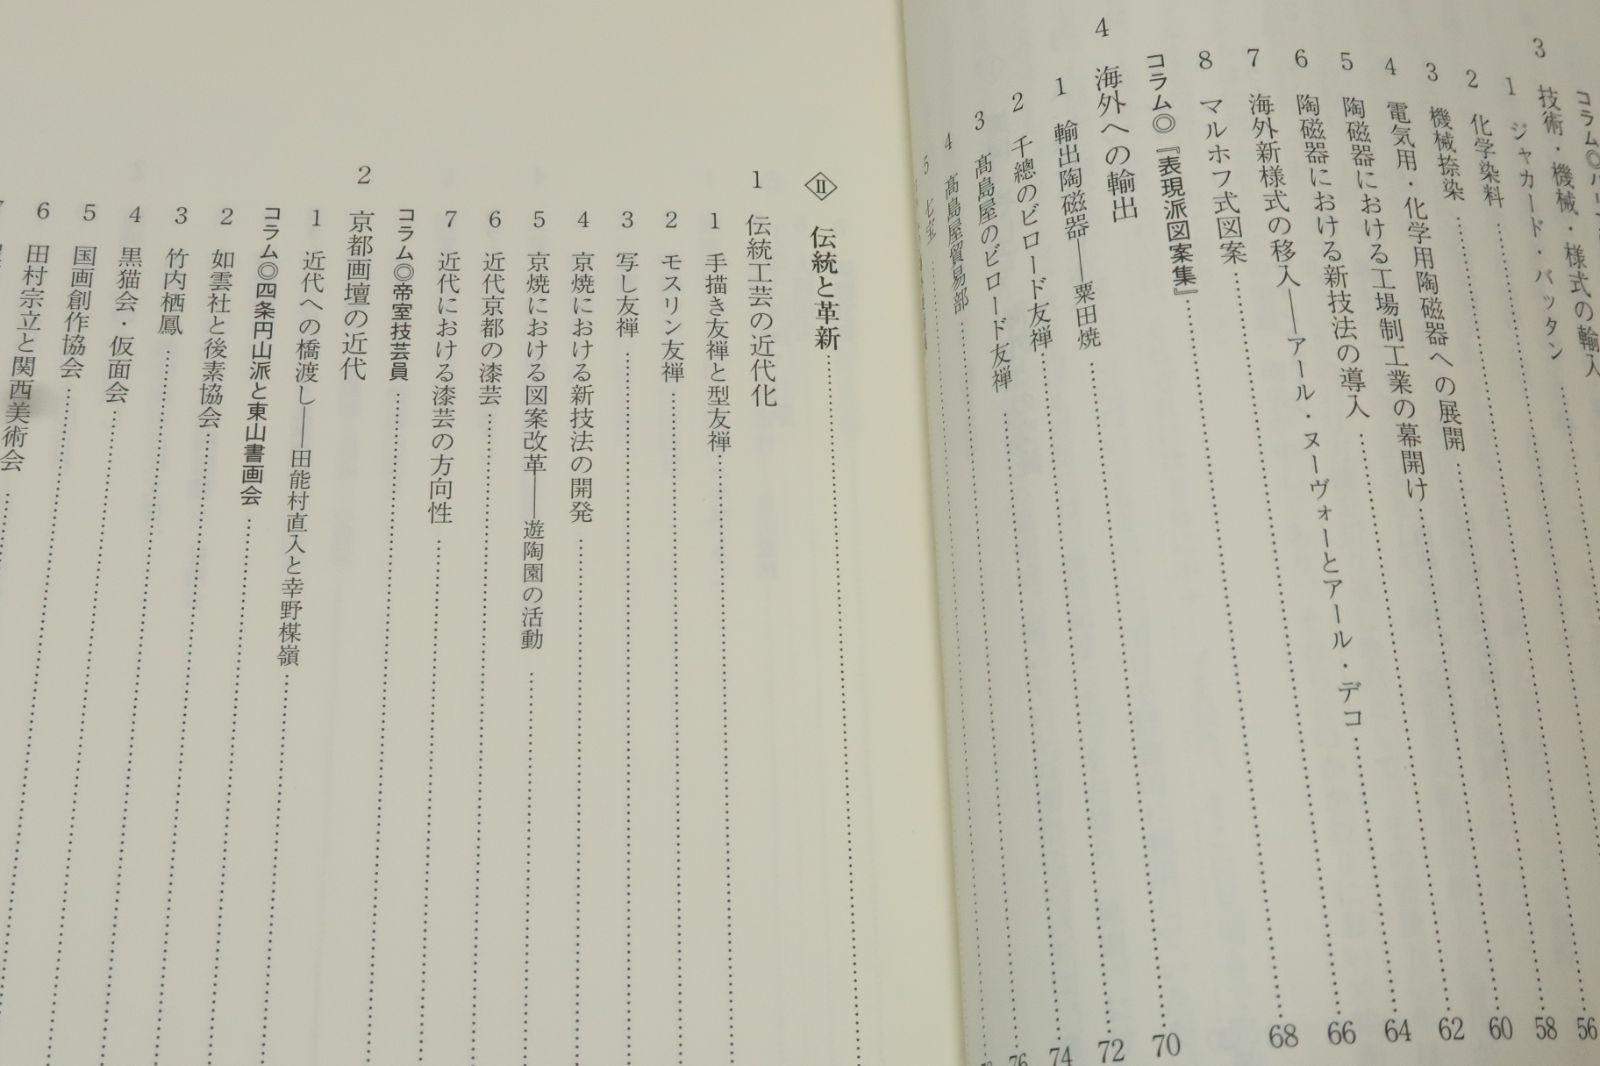 コラム◎パリ
3 技術・機械・様式の輸入
1 ジャカード・バッタン
2 化学染料……56
3 機械捺染……58
4 電気用・化学用陶磁器への展開……60
5 陶磁器における工場制工業の幕開け……62
6 陶磁器における新技法の導入……64
7 海外新様式の移入――アール・ヌーヴォーとアール・デコ……66
8 マルホフ式図案……68
コラム◎『表現派図案集』……70
4 海外への輸出
1 輸出陶磁器――粟田焼……72
2 千總のビロード友禅……74
3 髙島屋のビロード友禅……76
4 髙島屋貿易部……
5
Ⅱ 伝統と革新……
1 伝統工芸の近代化
1 手描き友禅と型友禅……
2 モスリン友禅……
3 写し友禅……
4 京焼における新技法の開発……
5 京焼における図案改革――遊陶園の活動……
6 近代京都の漆芸……
7 近代における漆芸の方向性……
コラム◎帝室技芸員……
2 京都画壇の近代
1 近代への橋渡し――田能村直入と幸野楳嶺……
コラム◎四条円山派と東山書画会……
2 如雲社と後素協会……
3 竹内栖鳳……
4 黒猫会・仮面会……
5 国画創作協会……
6 田村宗立と関西美術会……
7